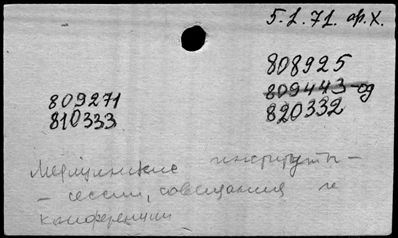 5.1.71. ф.Х.
808925
809443-од
820332
809271
810333
Медицинские институты -
- сессии, совещания и
конференции